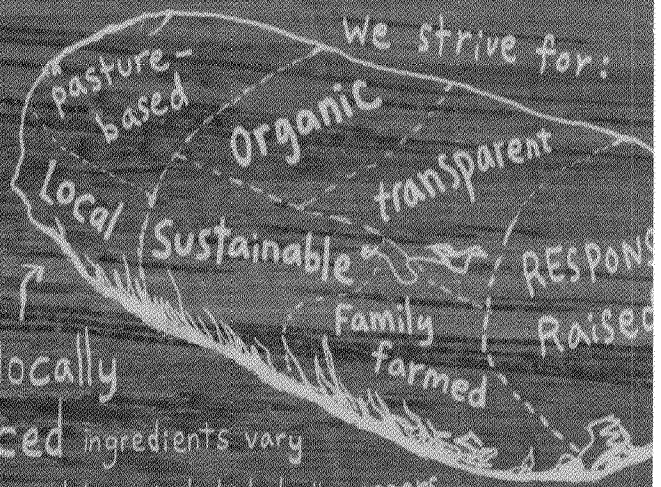 We strive for:
pasture-
based
Organic
transparent
Local
Sustainable
RESPONS
Raised
Family
farmed
locally
ced ingredients vary